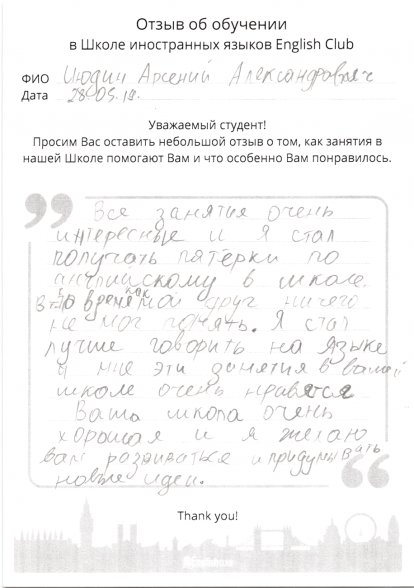 Отзыв об обучении
в Школе иностранных языков English Club
ФИО Июдин Арсений Александрович
Дата 28.05.19.
Уважаемый студент!
Просим Вас оставить небольшой отзыв о том, как занятия в
нашей Школе помогают Вам и что особенно Вам понравилось.
Все занятия очень
интересные и я стал
получать пятёрки по
английскому в школе.
В то время как мой друг ничего
не мог понять. Я стал
лучше говорить на языке
и мне эти занятия в вашей
школе очень нравятся
Ваша школа очень
хорошая и я желаю
вам развиваться и придумывать
новые идеи.
Thank you!